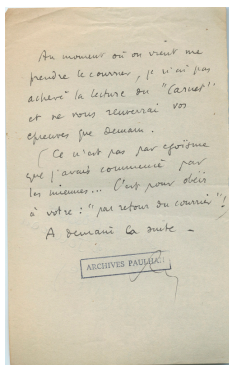 Au moment où on vient me
prendre le courrier, je n'ai pas
achevé la lecture du "Carnet"
et ne vous renverrai vos
épreuves que demain.
(Ce n'est pas par égoïsme
que j'avais commencé par
les miennes... C'est pour obéir
à votre : "par retour du courrier"!
A demain la suite -
ARCHIVES PAULHAN